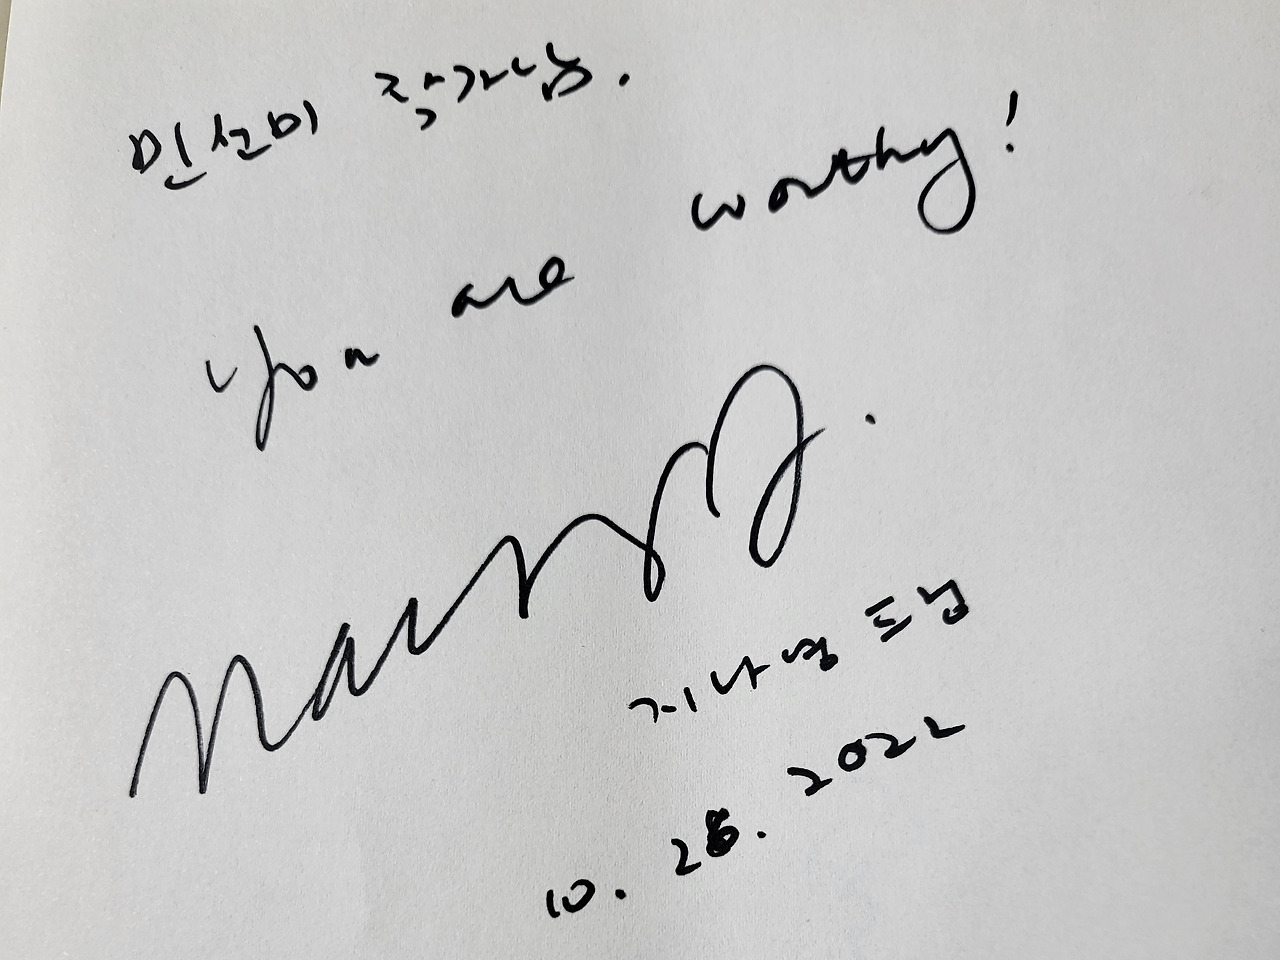 민선미 작가님.
you are worthy!
지나영 드림
10. 28. 2022